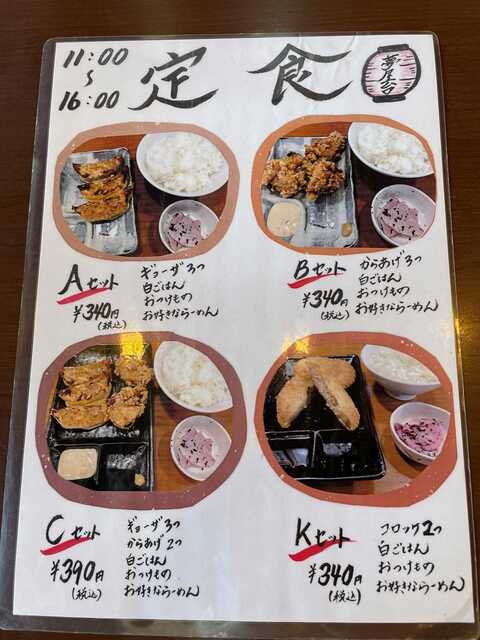 11:00
〜
16:00
定食
夢屋台
Aセット
¥340円
(税込)
ギョーザ3つ
白ごはん
おつけもの
お好きならーめん
Bセット
¥340円
(税込)
からあげ3つ
白ごはん
おつけもの
お好きならーめん
Cセット
¥390円
(税込)
ギョーザ3つ
からあげ2つ
白ごはん
おつけもの
お好きならーめん
Kセット
¥340円
(税込)
コロッケ2つ
白ごはん
おつけもの
お好きならーめん